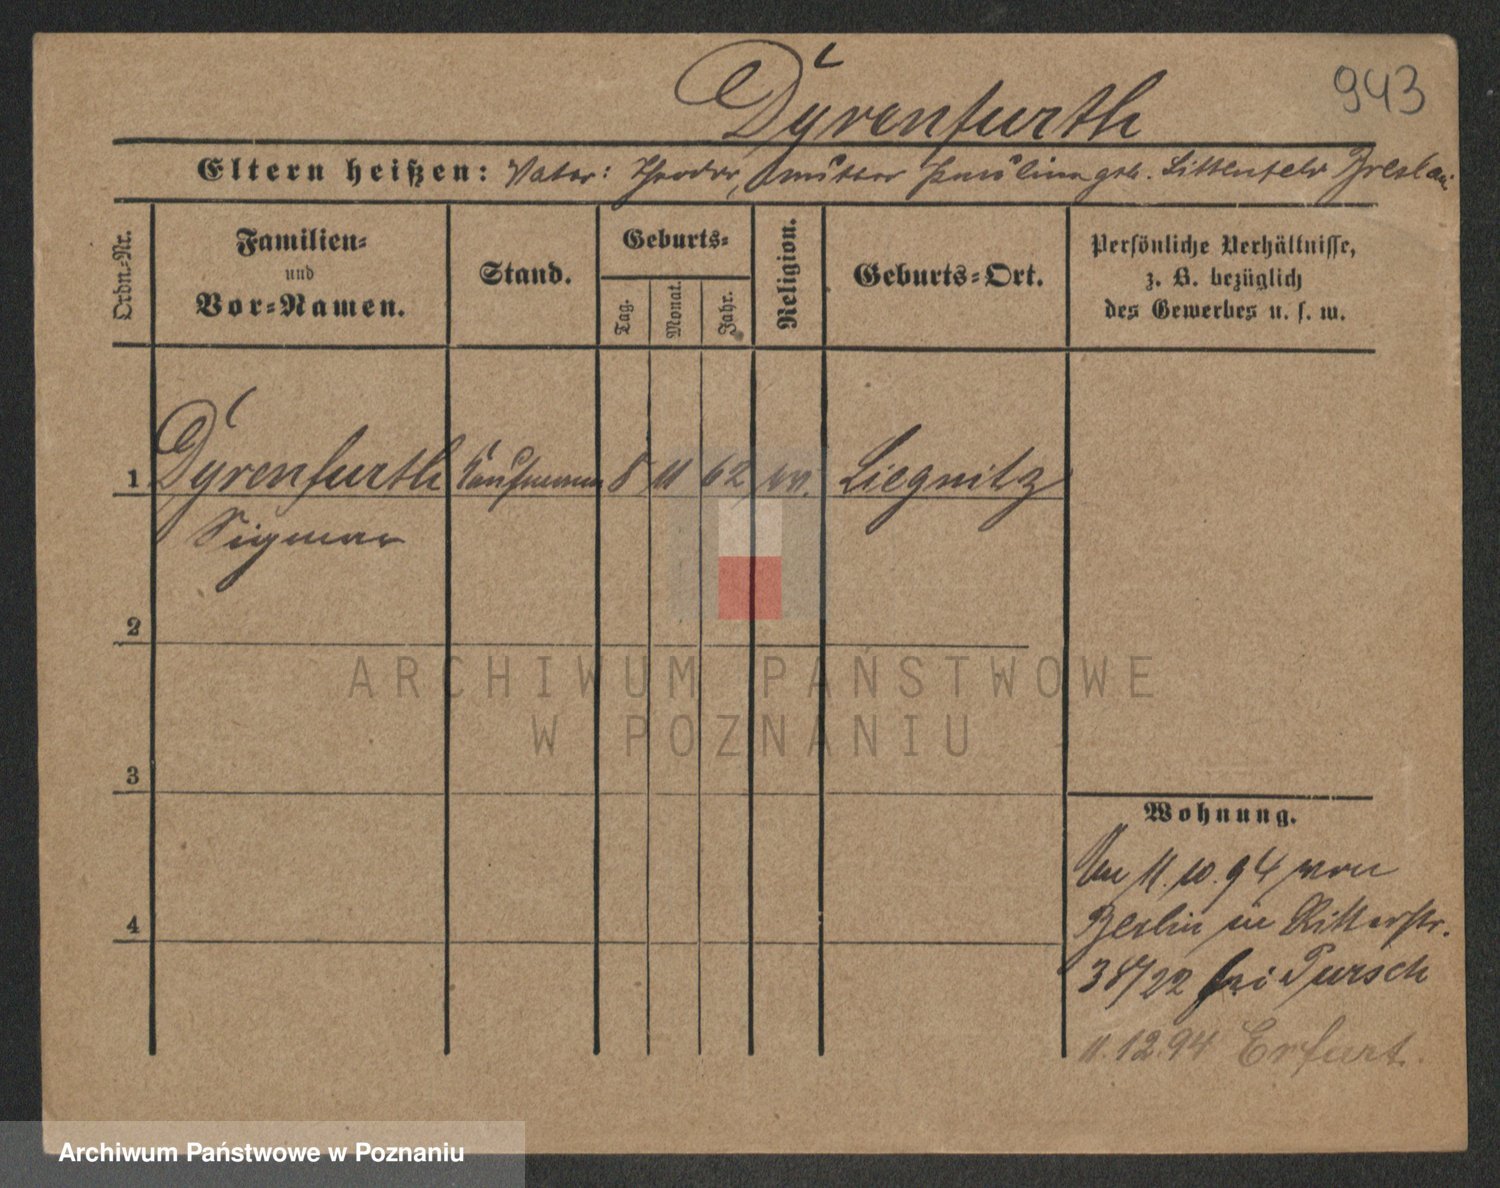 943
Dyrenfurth
Eltern heißen: Vater: Theodor, Mutter Pauline geb. Littenfeld Breslau
Ordn.-Nr.
Familien-
und
Vor-Namen.
Stand.
Geburts-
Tag.
Monat.
Jahr.
Religion.
Geburts-Ort.
Persönliche Verhältnisse,
z. B. bezüglich
des Gewerbes u. s. w.
1 Dyrenfurth Kaufmann 8 11 62 Liegnitz
Sigmar
2
3
4
Wohnung.
11.10.94 von
Berlin in Ritterstr.
38/22 bei Pursch
11.12.94 Erfurt.
ARCHIWUM PAŃSTWOWE
W POZNANIU
Archiwum Państwowe w Poznaniu